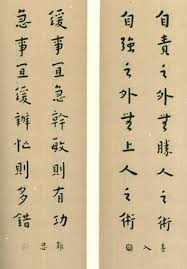 自責之外無勝人之術
自強之外無上人之術
緩事宜急幹敏則有功
急事宜緩辦忙則多錯